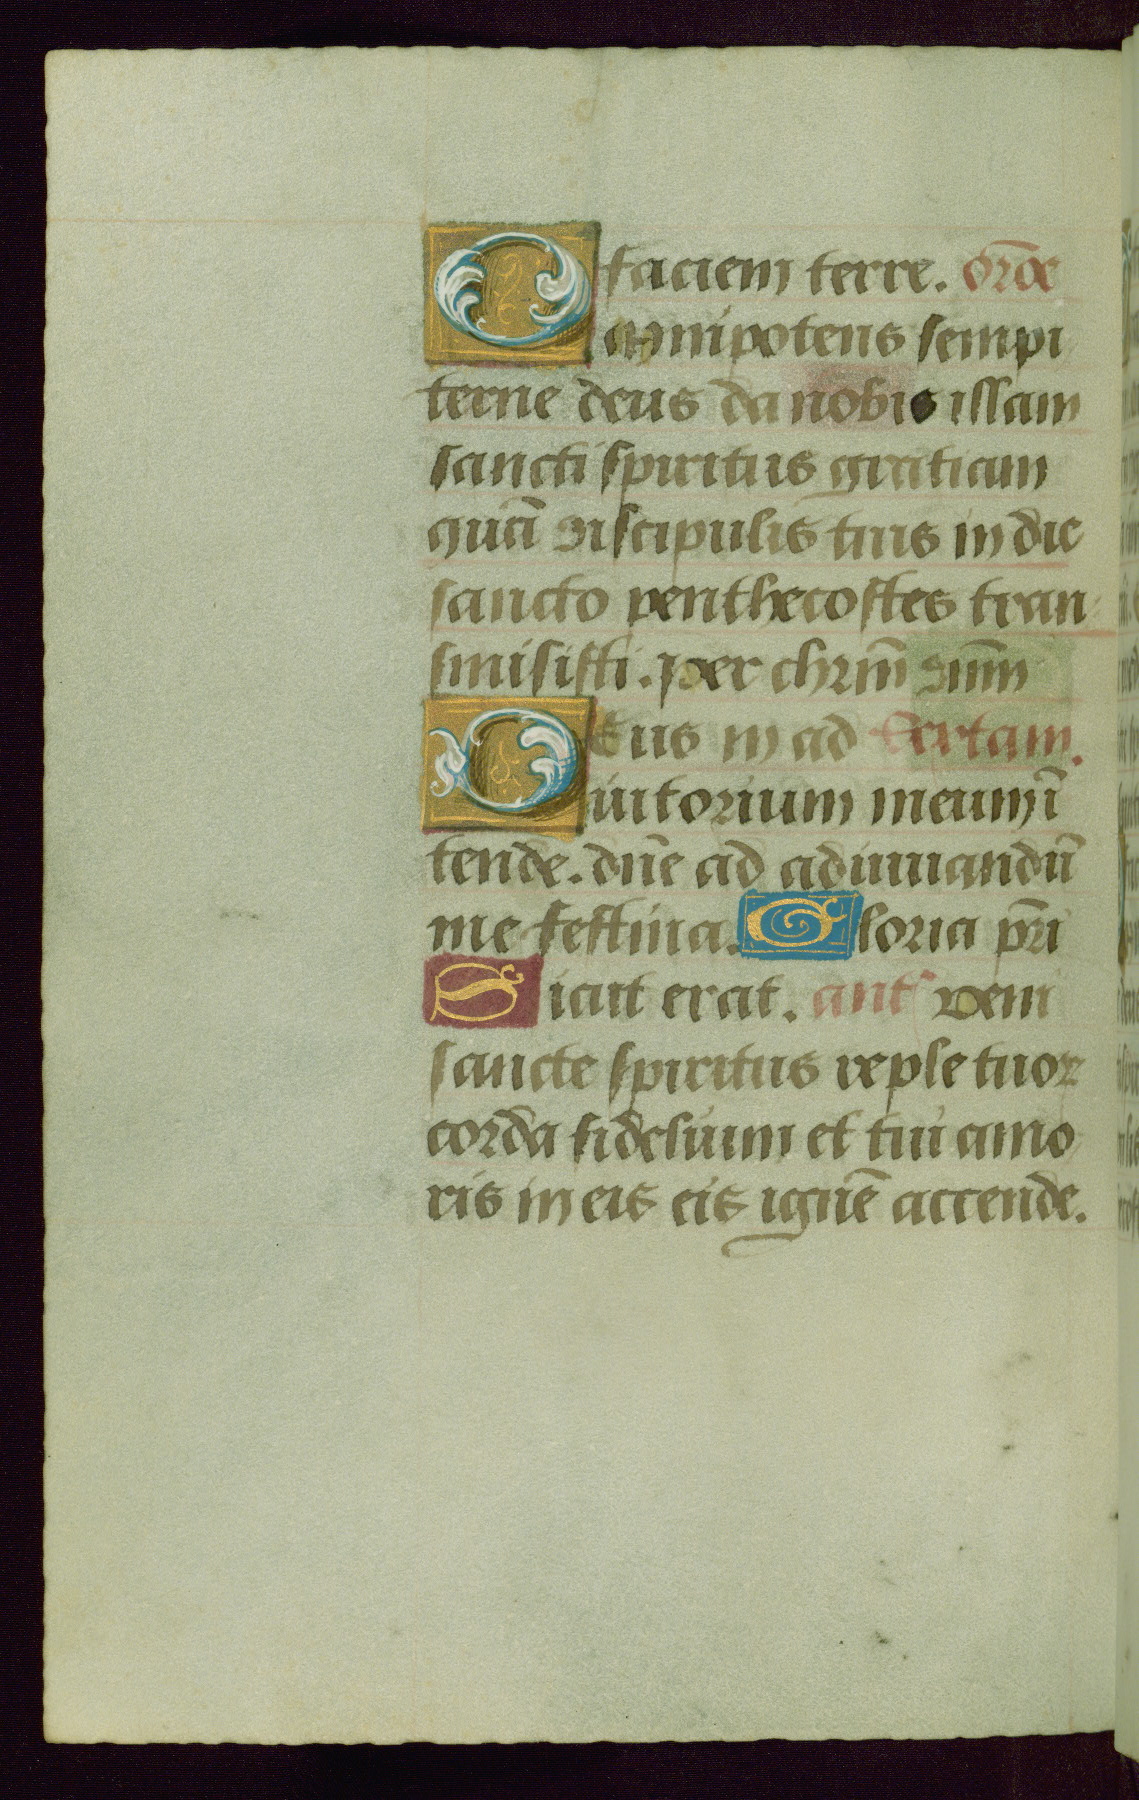 faciem terre. Orõe
Omnipotens sempi
terne deus da nobis illam
sancti spiritus gratiam
quã discipulis tuis in die
sancto penthecostes tran
smisisti. per chrm̃ dnm̃
Deus in ad Sextam.
iutorium meum ĩ
tende. dñe ad adiuuandũ
me festina. Gloria pr̃i
Sicut erat. ant̃ veni
sancte spiritus reple tuoꝝ
corda fidelium et tui amo
ris in eis eis ignẽ accende.